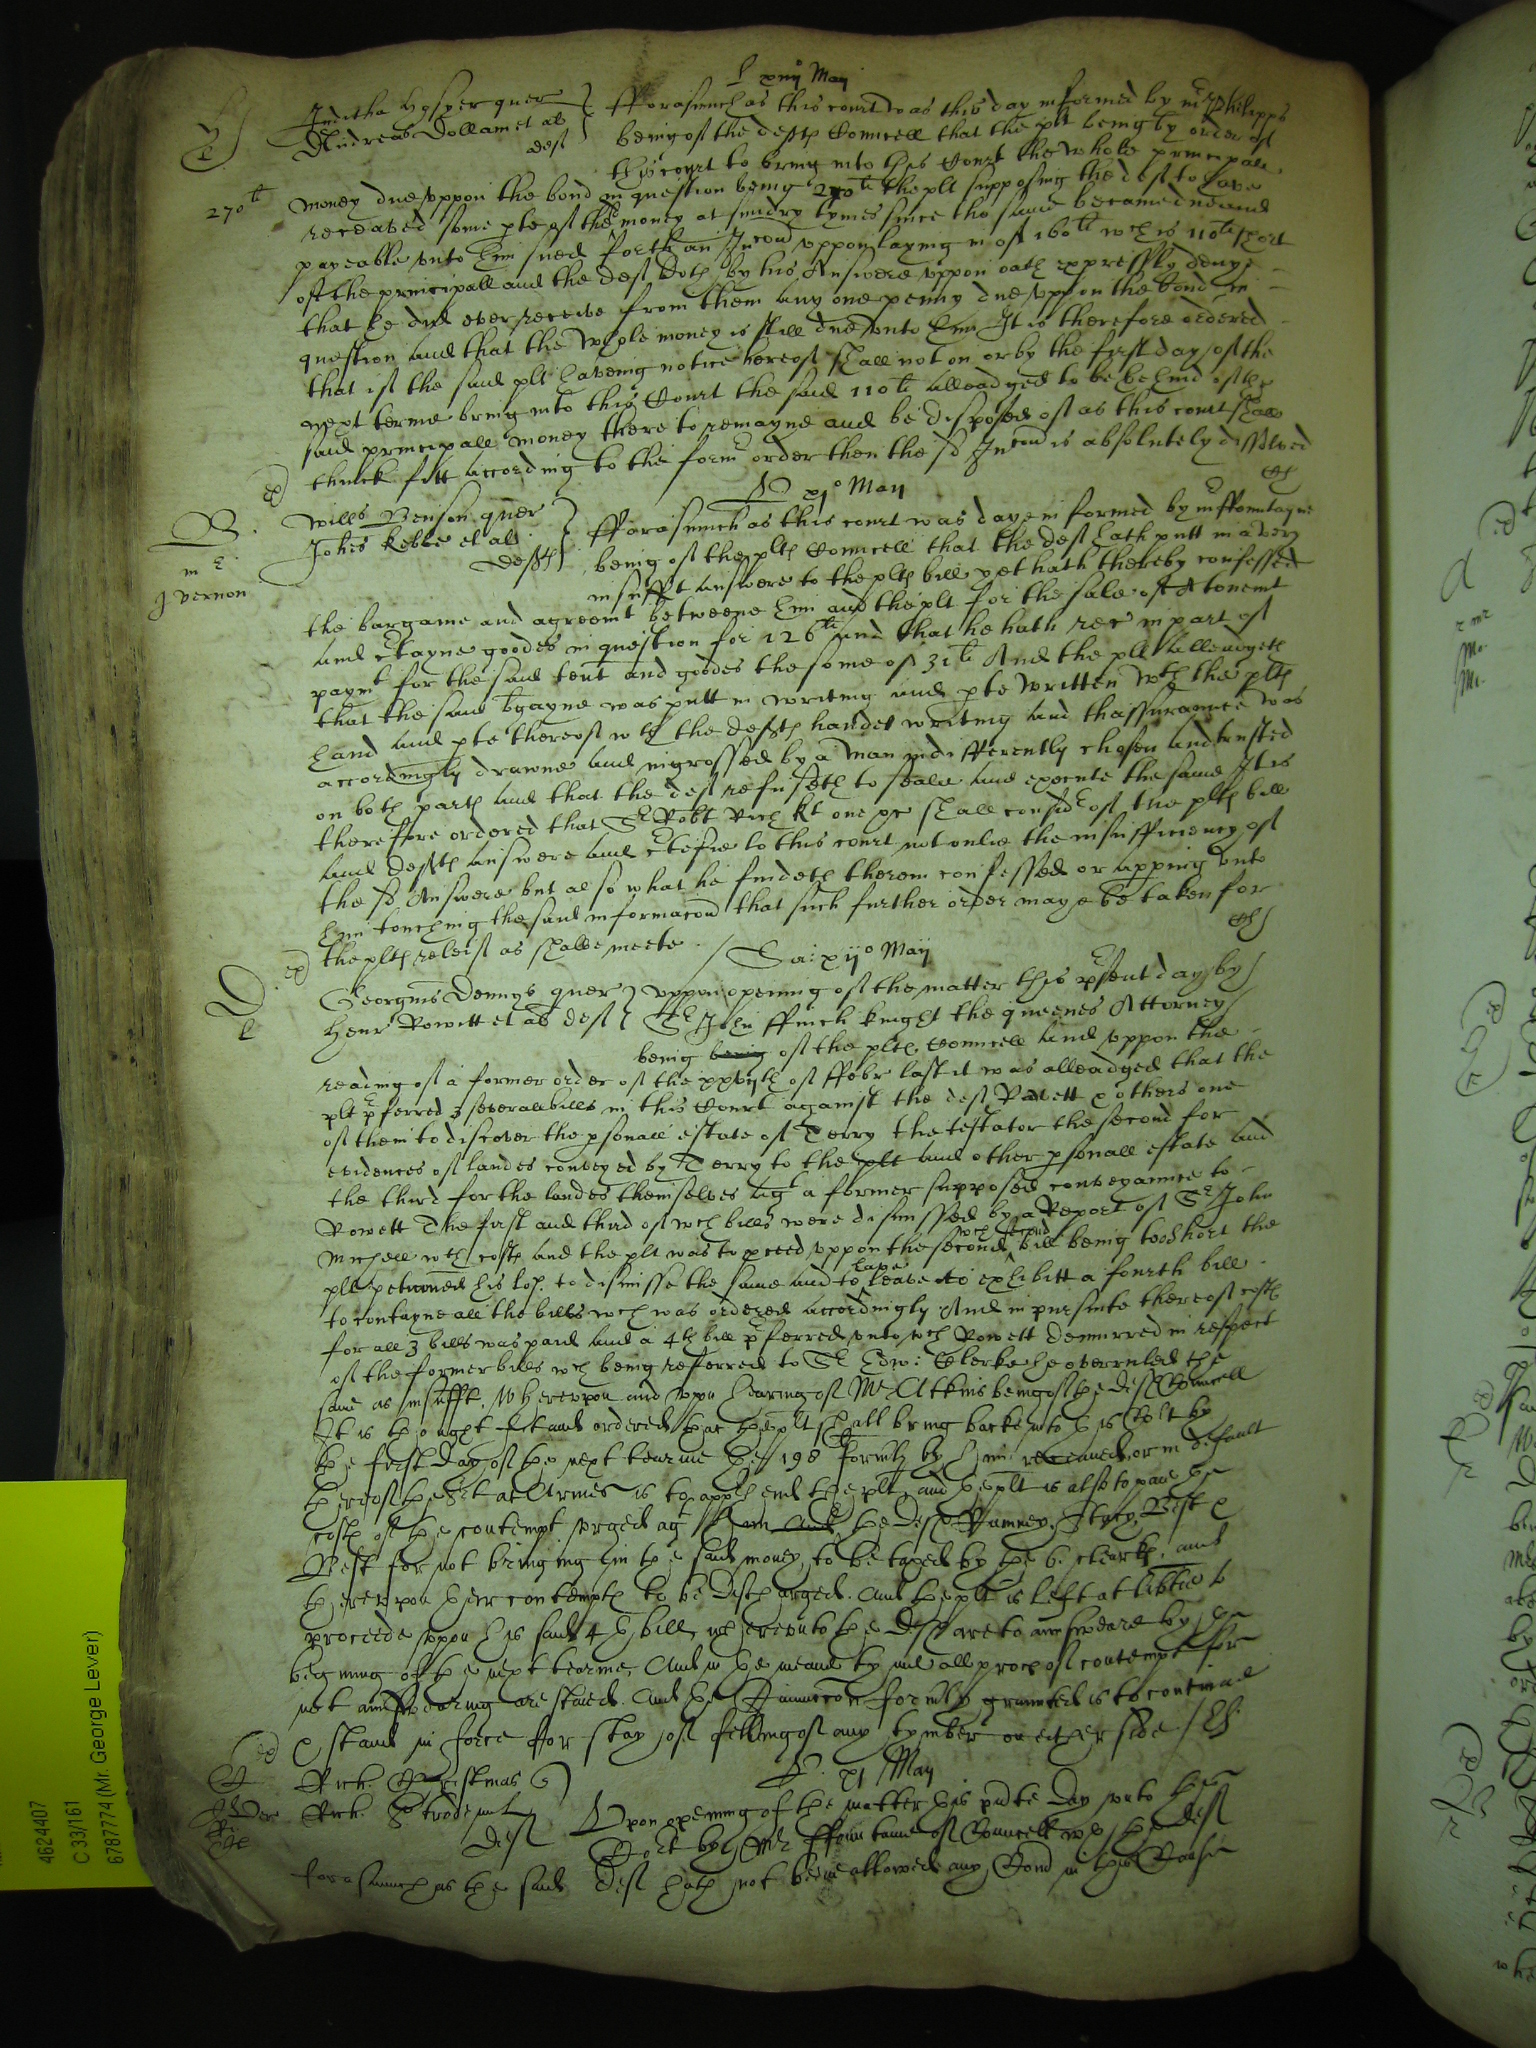 L xiiij May
Juditha Hosyer quer
Andreas Dollam et al
def
fforasmuch as this court was this day informed by mr Phelipps
being of the defts Councell that the plt being by order of
this court to bring into this Court the whole principall
270li
money due uppon the bond in question being 270li the plt supposing the deft to have
receaved some pte of the money at sundry tymes since the same became due and
payeable unto him sued forth an Inicon uppon laying in of 160li wch is 110li short
of the principall and the deft doth by his Answere uppon oath expressly denye
that he did ever receive from them any one penny due uppon the bond in
question and that the whole money is still due unto him It is therefore ordered
that if the said plt haveing notice hereof shall not on or by the first day of the
next terme bring into this Court the said 110li alleadged to be behind of the
said principall money there to remayne and be disposed of as this court shall
thinck fitt according to the formr order then the sd Incon is absolutely dissolved
ex
xjo May
B
Willis Benson quer
Johes Keble et al
defts
m
J vernon
fforasmuch as this court was daye informed by mr ffountayne
being of the plts Councell that the deft hath putt in a very
insufft answere to the plts bill yet hath thereby confessed
the bargaine and agreemt betweene him and the plt for the sale of A tenemt
and ctayne goodes in question for 126li and that he hath rec in part of
paymt for the said tent and goodes the some of 31li And the plt alleadgeth
that the said bgayne was putt in writing and pte written wth the plts
hand and pte thereof wth the defts handes writing and thassurance was
accordingly drawne and ingrossed by a man indifferently chosen and trusted
on both parts and that the deft refuseth to seale and execute the same It is
thereffore ordered that Sr Robt Rich kt one &c shall considr of the plts bill
and defts answere and ctefie to this court not onlie the insufficiency of
the sd Answere but also what he findeth therein confessed or apping unto
him touching the said informacon that such further order maye be taken for
the plts releif as shalbe meete
ex
Sa: xijo Maij
D
Georgius Dennys quer
Henr Rowitt et al def
uppon opening of the matter this psent day by
Sr John ffinch knight the queenes Attorney
being being of the plts Councell and uppon the
reading of a former order of the xxvijth of ffebr last it was alleadged that the
plt pferred 3 severall bills in this Court against the deft Rowett & others one
of them to discover the psonall estate of Terry the testator the second for
evidences of landes conveyed by Terry to the plt and other psonall estate and
the third for the landes themselves agt a former supposed conveyance to
Rowett The first and third of wch bills were dismissed by a Report of Sr John
Michell wth costs and the plt was to pceed uppon the second wch second bill being too short the
plt peticoned his lop. to dismisse the same and to have leave to exhibitt a fourth bill
to contayne all the bills wch was ordered accordingly And in pursuite thereof costs
for all 3 bills was paid and a 4th bill pferred unto wch Rowett demurred in respect
of the former bills wch being referred to Sr Edw: Clerke he overruled the
same as insufft. Whereupon and upon hearing of Mr Atkins being of the defts Councell
It is thought fit and ordered that the plt shall bring backe into this Co:rt by
the first day of the next tearme the 198 formly by him receaved or in default
thereof the Sert at Armes is to apphend the plt, and the plt is also to paie the
costs of the contempt urged agt him and the defts Rumney, Stacy, Best &
Best for not bringing in the said money, to be taxed by the 6. clearks, and
thereupon their contempts to be discharged. And the plt is left at libtie to
proceede uppon his said 4th bill, whereunto the defts are to answeare by the
begining of the next tearme, And in the meane tyme all proces of contempt for
not answearing are staied. And the Iniuncon formly graunted is to continue
& stand in force for stay of felling of any tymber on either side
ex
xj May
Rich. Christmas
Rich. Strode mil
def
Upon opening of the matter this pnte day unto this
Cort by Mr ffountaine of Councell wth the deft
forasmuch as the said deft hath not beene allowed any Bond in this Cause
4624407
C 33/161
6787774 (Mr. George Lever)